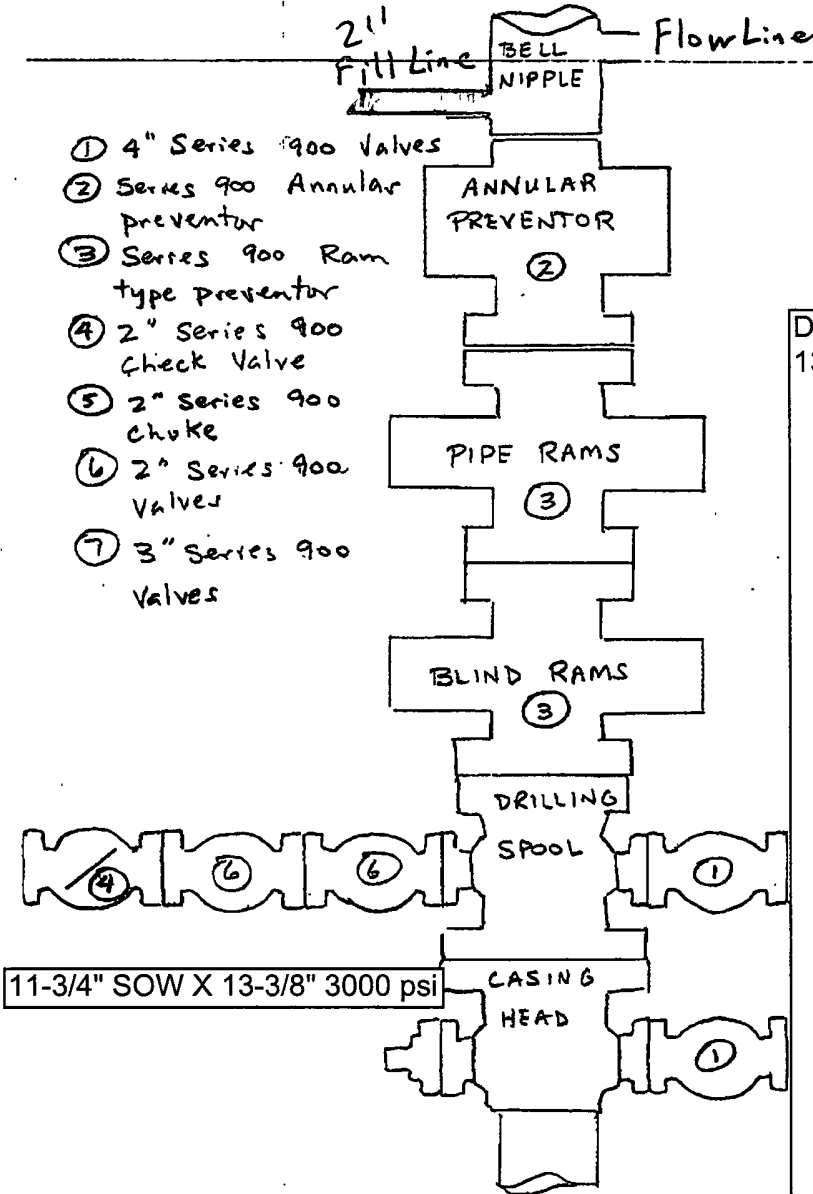 2" Fill Line
Flow Line
BELL
NIPPLE
① 4" Series 900 Valves
② Series 900 Annular
preventor
③ Series 900 Ram
type preventor
④ 2" Series 900
Check Valve
⑤ 2" Series 900
Choke
⑥ 2" Series 900
Valves
⑦ 3" Series 900
Valves
ANNULAR
PREVENTOR
②
PIPE RAMS
③
BLIND RAMS
③
DRILLING
SPOOL
④ ⑥ ⑥ ①
11-3/4" SOW X 13-3/8" 3000 psi
CASING
HEAD
①
D
13